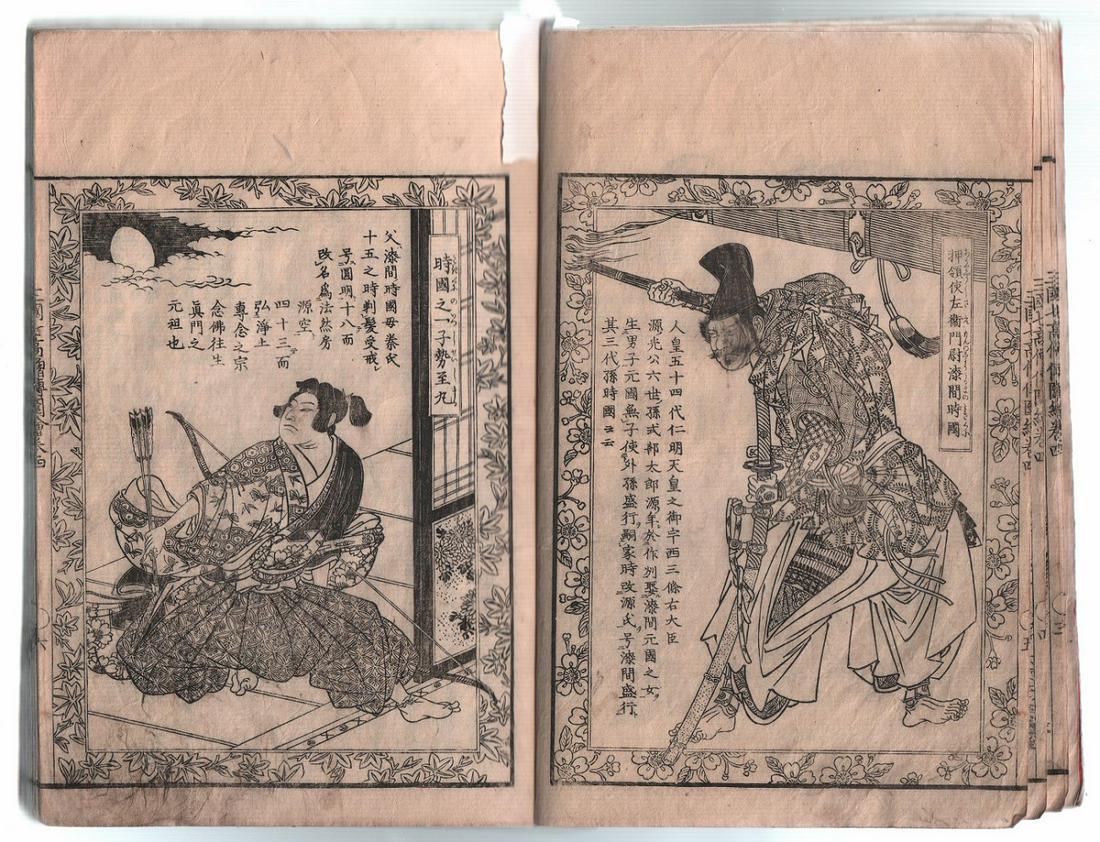 押領使左衞門尉漆間時國
人皇五十四代仁明天皇之御宇西三條右大臣
源光公六世孫式部太郎源年於作娶漆間元國之女
生男子元國無子使外孫盛行嗣家時改源氏号漆間盛行
其三代孫時國云云
時國之一子勢至丸
父漆間時國母秦氏
十五之時剃髮受戒
号圓明十八而
改名爲法然房
源空
四十三而
弘淨土
專念之宗
念佛往生
眞門之
元祖也